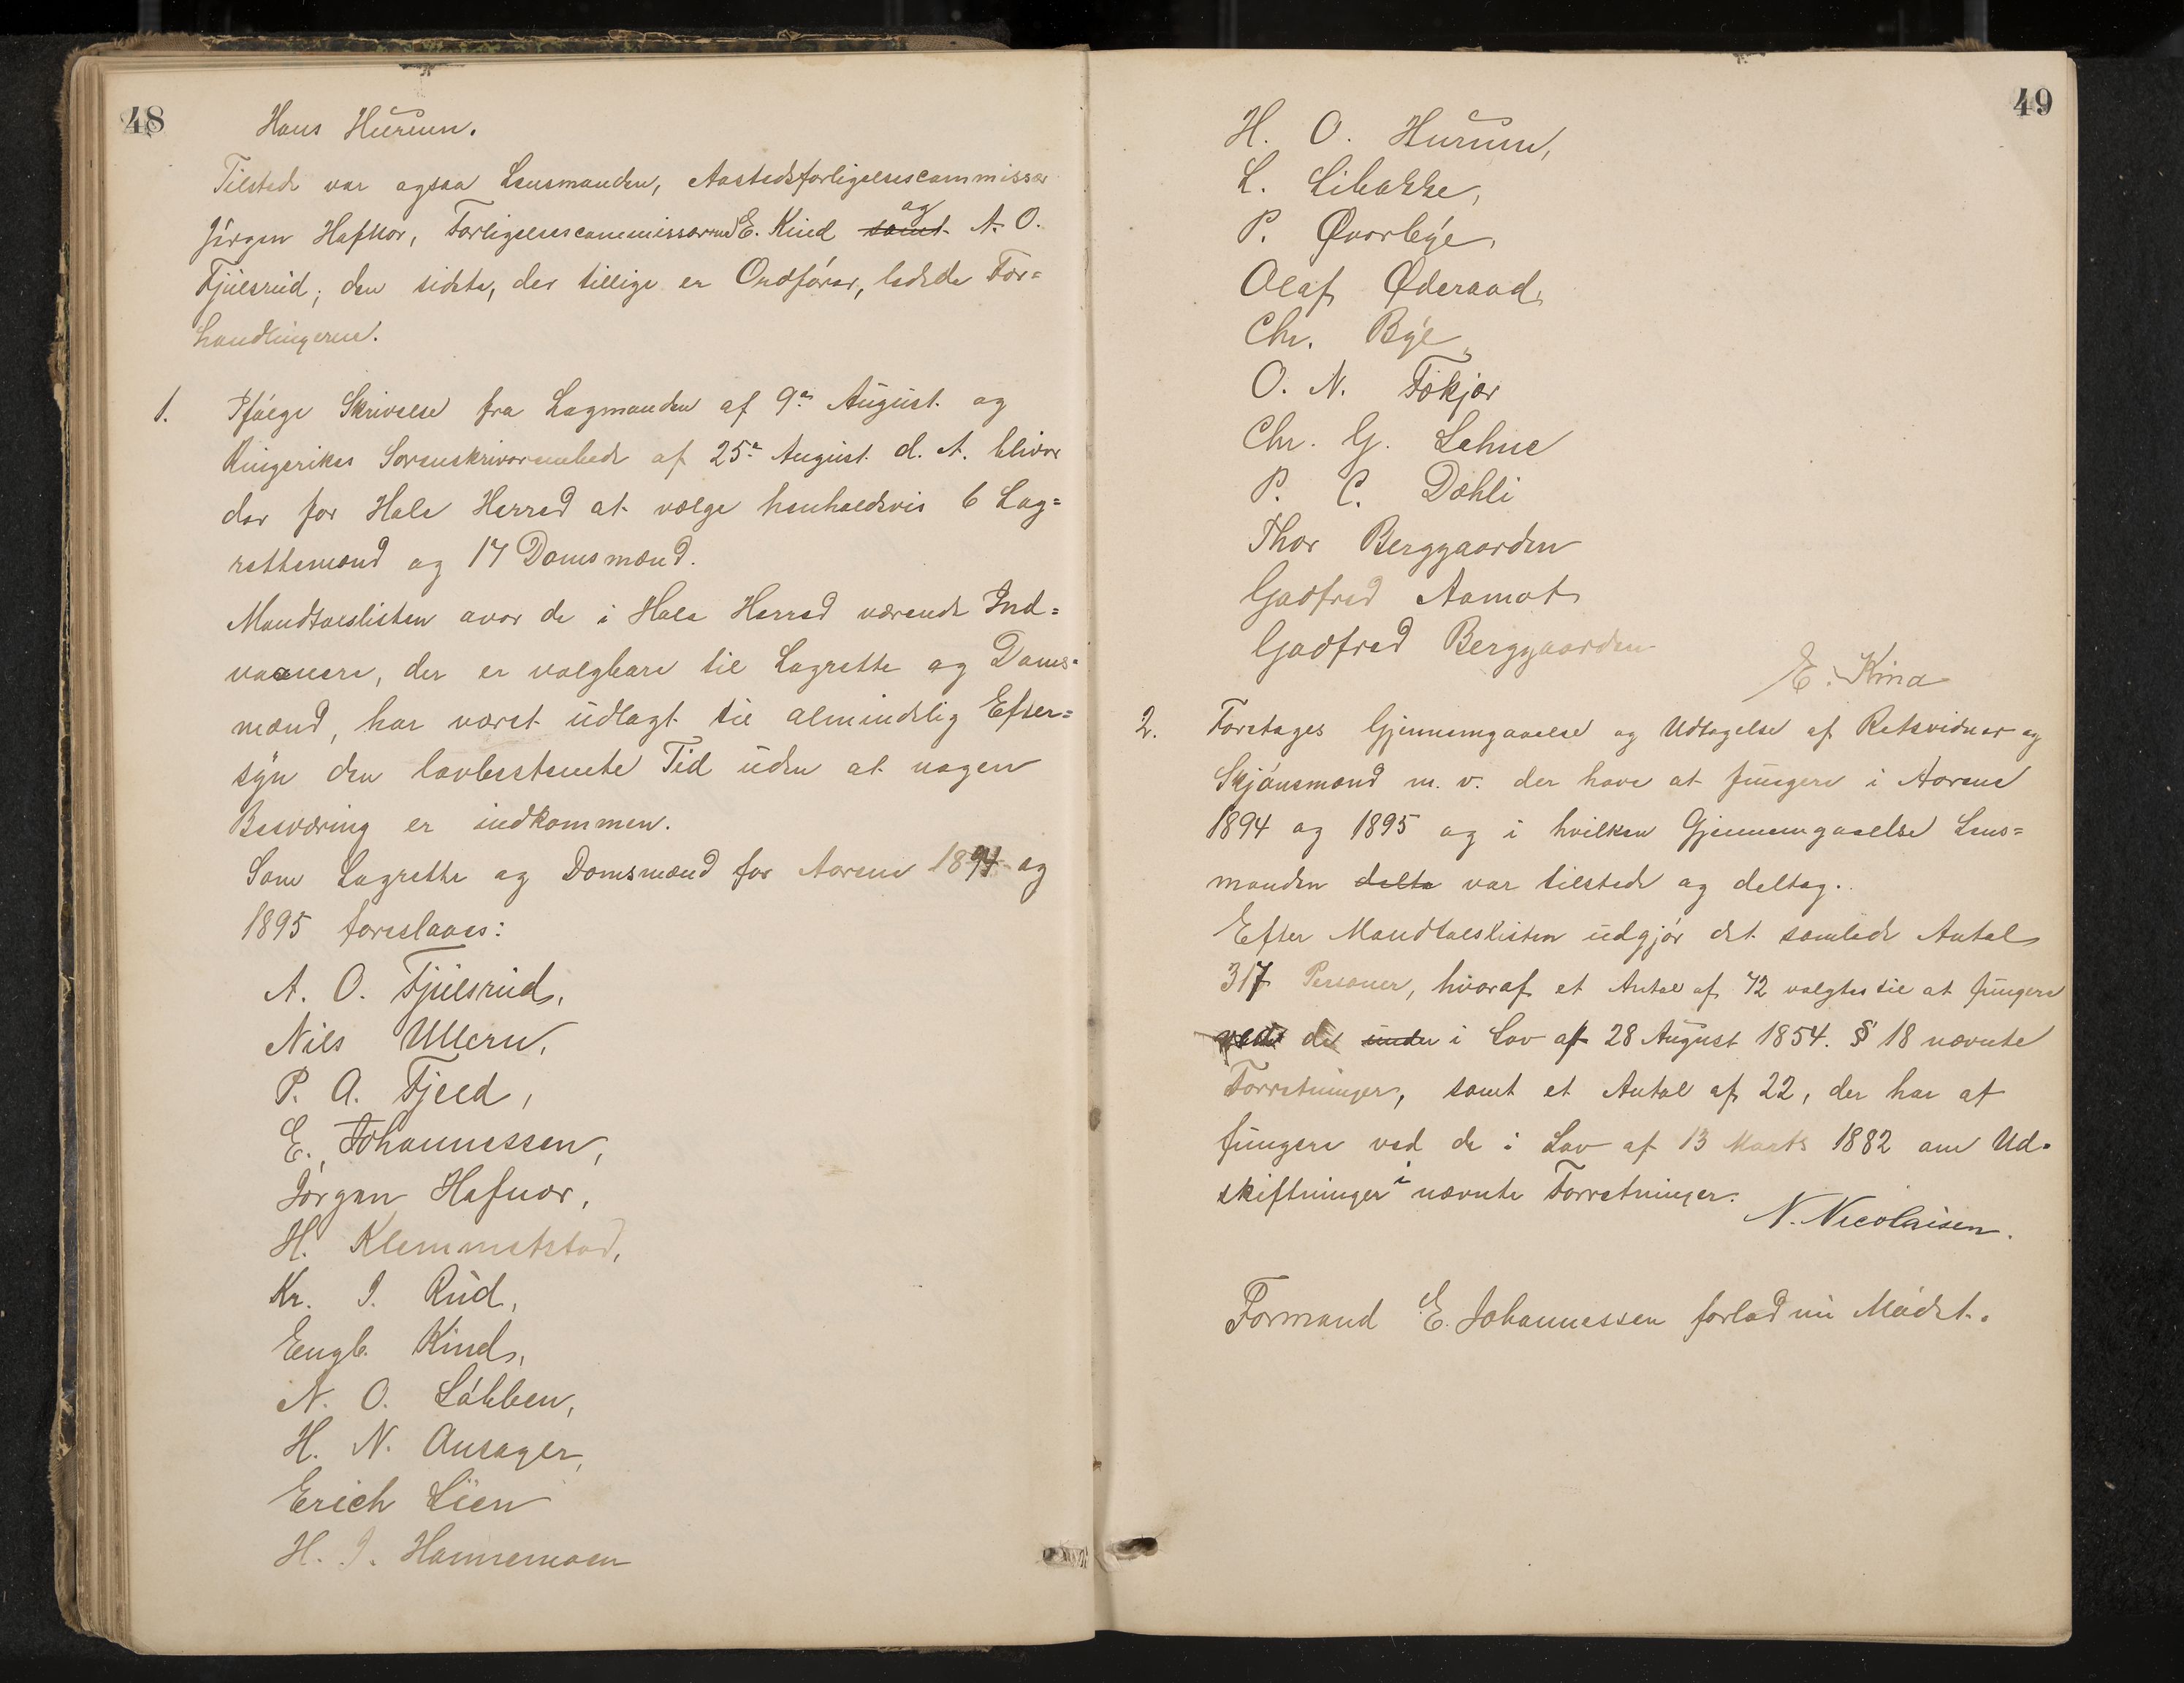 48
Hans Hurum.
Tilstede var ogsaa Lensmanden, Aastedsforligelsescommissær
Jörgen Hafnor, Forligelsescommissærene E. Kind samt og A. O.
Fjulsrud; den sidste, der tillige er Ordförer, ledede For=
handlingerne.
1. Ifölge Skrivelse fra Lagmanden af 9de August og
Ringerikes Sorenskriverembede af 25de August d. A. bliver
der for Hole Herred at vælge henholdsvis 6 Lag=
rettemænd og 17 Domsmænd.
Mandtalslisten over de i Hole Herred værende Ind=
vaanere, der er valgbare til Lagrette og Doms=
mænd, har været udlagt til almindelig Efter=
syn den lovbestemte Tid uden at nogen
Besværing er indkommen.
Som Lagrette og Domsmænd for Aarene 1894 og
1895 foreslaaes:
A. O. Fjulsrud,
Nils Ullern,
P. A. Fjeld,
E. Johannessen,
Jörgen Hafnor,
H. Klemmetstad,
Kr. J. Rud,
Engb. Kind,
N. O. Löbben,
H. N. Onsager,
Erich Lien
H. J. Hannemoen
49
H. O. Hurum,
L. Libakke,
P. Øverbye,
Olaf Øderaad,
Chr. Bye,
O. N. Tokjær
Chr. G. Lehne
P. C. Dæhli
Thor Berggaarden
Godfred Aamot
Godfred Berggaarden
E. Kind
2. Foretages Gjennemgaaelse og Udtagelse af Retsvidner og
Skjönsmænd m. v. der have at fungere i Aarene
1894 og 1895 og i hvilken Gjennemgaaelse Lens=
manden delto var tilstede og deltog.
Efter Mandtalslisten udgjör det samlede Antal
317 Personer, hvoraf et Antal af 72 valgtes til at fungere
ved de under i Lov af 28 August 1854. § 18 nævnte
Forretninger, samt et Antal af 22, der har at
fungere ved de i Lov af 13 Marts 1882 om Ud=
skiftninger i nævnte Forretninger.
N. Nicolaisen.
Formand E. Johannessen forlod nu Mödet.